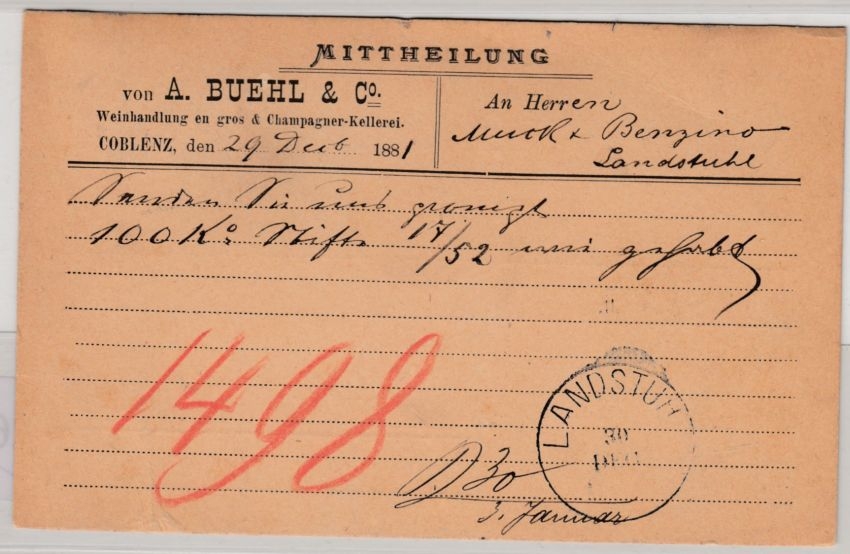 MITTHEILUNG
von A. BUEHL & Co.
Weinhandlung en gros & Champagner-Kellerei.
COBLENZ, den 29 Decb 1881
An Herren
& Benzino
Landstuhl
Senden Sie uns prompt
100 Ko Stifte 17/52 wie gehabt
1498
LANDSTUH
30
DEC
30
3. Januar